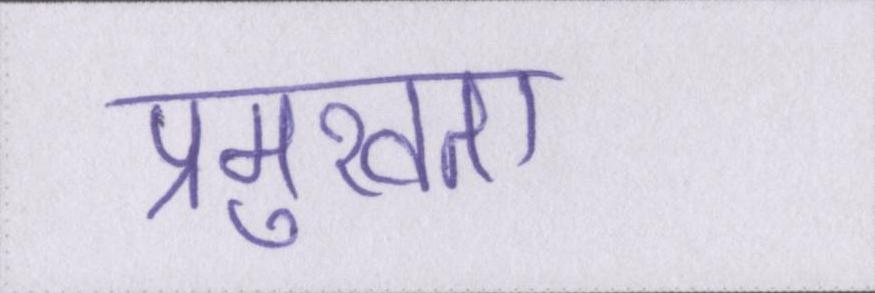 प्रमुखता